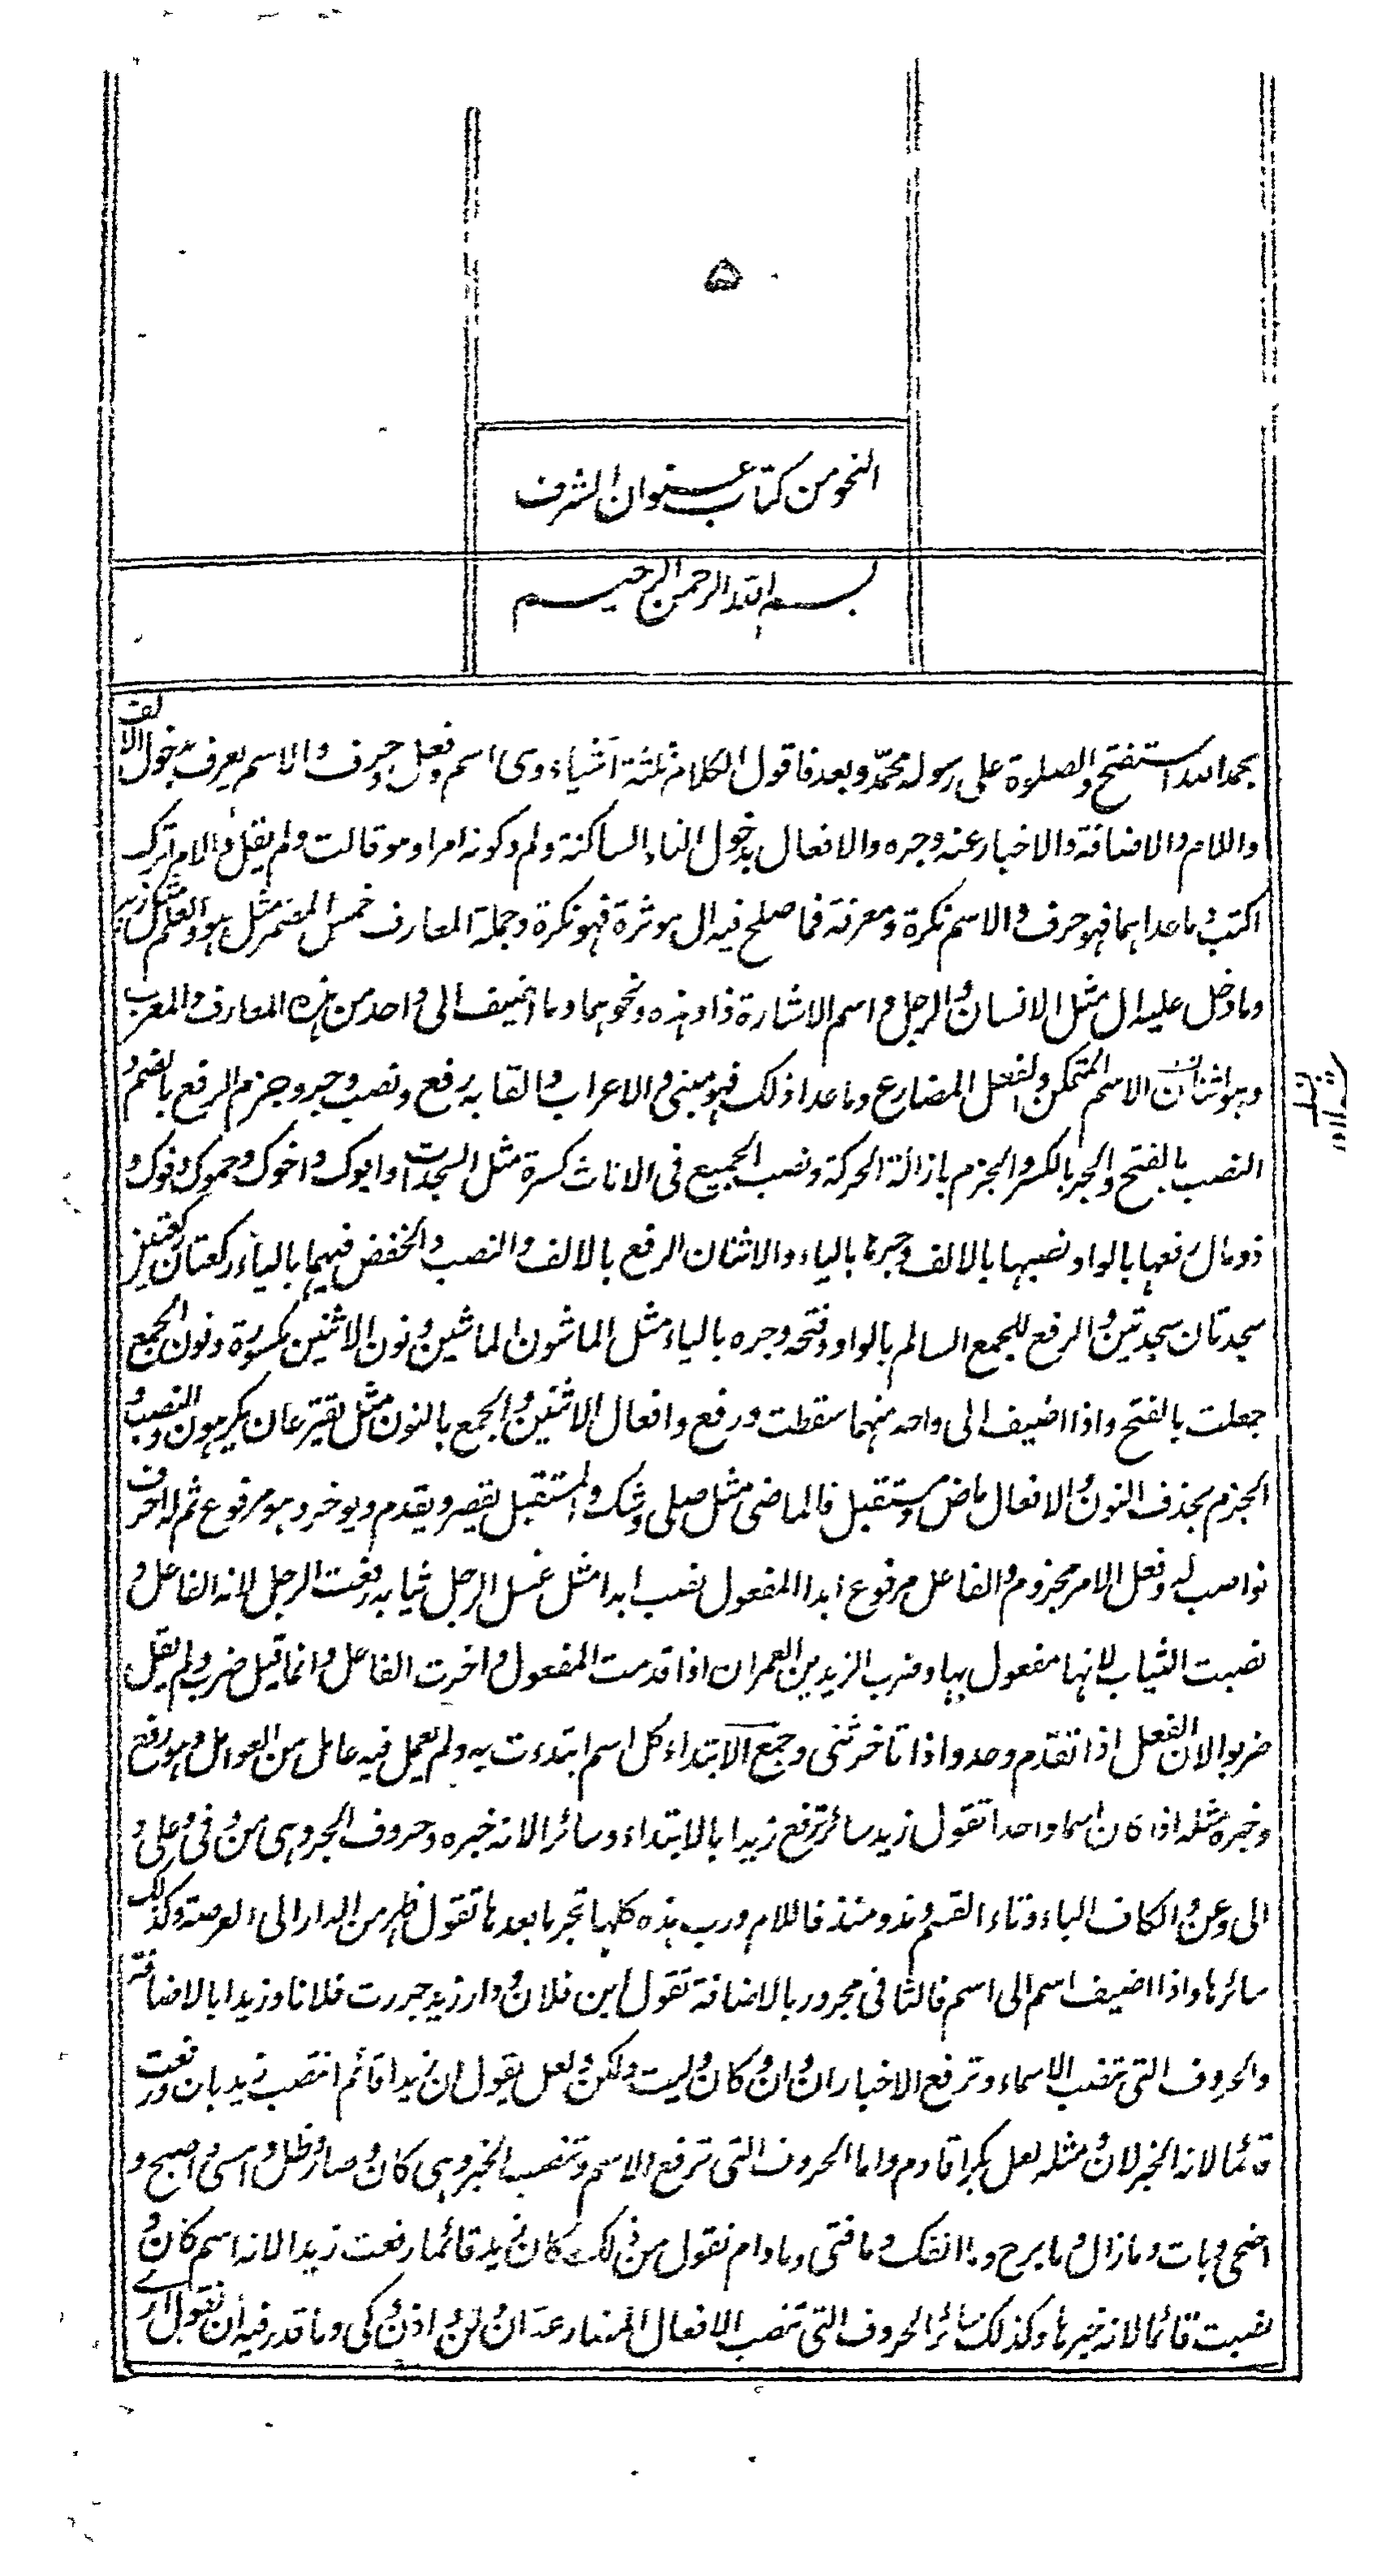 ۵
النحو من كتاب عنوان الشرف
بسم الله الرحمن الرحيم
بحمد الله استفتح والصلوة على رسوله محمد وبعد فاقول الكلام ثلثة اشياء وى اسم وفعل وحرف والاسم يعرف بدخول الالف
واللام والاضافة والاخبار عنه وجره والافعال بدخول التاء الساكنة ولم وكونه امرا وهو قالت ولم يقل والامر اترك
اكتب وماعداهما فهو حرف والاسم نكرة ومعرفة فما صلح فيه ال موثرة فهو نكرة وجملة المعارف خمس المضمر مثل هو والعلم مثل زيد
وما دخل عليه ال مثل الانسان والرجل واسم الاشارة ذا وهذه ونحوهما وما اضيف الى واحد من هذه المعارف والمعرب
وهو اثنان الاسم المتمكن والفعل المضارع وما عدا ذلك فهو مبنى والاعراب والقابه رفع ونصب وجر وجزم الرفع بالضم و
النصب بالفتح والجر بالكسر والجزم بازالة الحركة ونصب الجميع فى الاناث كسرة مثل السجدات وابوك واخوك وحموك وفوك و
ذو مال رفعها بالواو ونصبها بالالف وجرها بالياء والاثنان الرفع بالالف والنصب والخفض فيهما بالياء ركعتان ركعتين
سجدتان سجدتين والرفع للجمع السالم بالواو وفتحه وجره بالياء مثل الماشون الماشين ونون الاثنين مكسورة ونون الجمع
جعلت بالفتح واذا اضيف الى واحد منهما سقطت ورفع وافعال الاثنين والجمع بالنون مثل يقترعان يكرهون والنصب و
الجزم بحذف النون والافعال ماض ومستقبل فالماضى مثل صلى وشك والمستقبل يقصر ويقدم ويوخر وهو مرفوع ثم له احرف
نواصب له وفعل الامر مجزوم والفاعل مرفوع ابدا المفعول نصب ابدا مثل غسل الرجل ثيابه رفعت الرجل لانه الفاعل و
نصبت الثياب لانها مفعول بها وضرب الزيدين العمران اذا قدمت المفعول واخرت الفاعل وانما قيل ضرب ولم يقل
ضربوا لان الفعل اذا تقدم وحد واذا تاخر ثنى وجمع الابتداء كل اسم ابتدءت به ولم يعمل فيه عامل من العوامل وهو رفع
وخبره مثله اذا كان اسما واحدا تقول زيد سائر ترفع زيدا بالابتداء وسائر الانه خبره وحروف الجر وهى من وفى وعلى و
الى وعن والكاف الباء وتاء القسم ومذ ومنذ فاللام ورب هذه كلها تجر ما بعدها تقول ظهر من الدار الى العرصة وكذلك
سائرها واذا اضيف اسم الى اسم فالثانى مجرور بالاضافة تقول ابن فلان ودار زيد جررت فلانا وزيدا بالاضافة
والحروف التى تنصب الاسماء وترفع الاخبار ان وان وكان وليت ولكن ولعل يقول ان زيدا قائم انتصب زيد بان ورفعت
قائما لانه الخبر لان ومثله لعل بكرا قادم واما الحروف التى ترفع الاسم وتنصب الخبر وهى كان وصار وظل وامسى واصبح و
اضحى وبات وما زال وما برح وما انفك وما فتى وما دام نقول من ذلك كان زيد قائما رفعت زيدا لانه اسم كان و
نصبت قائما لانه خبرها وكذلك سائر الحروف التى تنصب الافعال المضارعة ان ولن واذن وكى وما قدر فيه ان تقول ارے